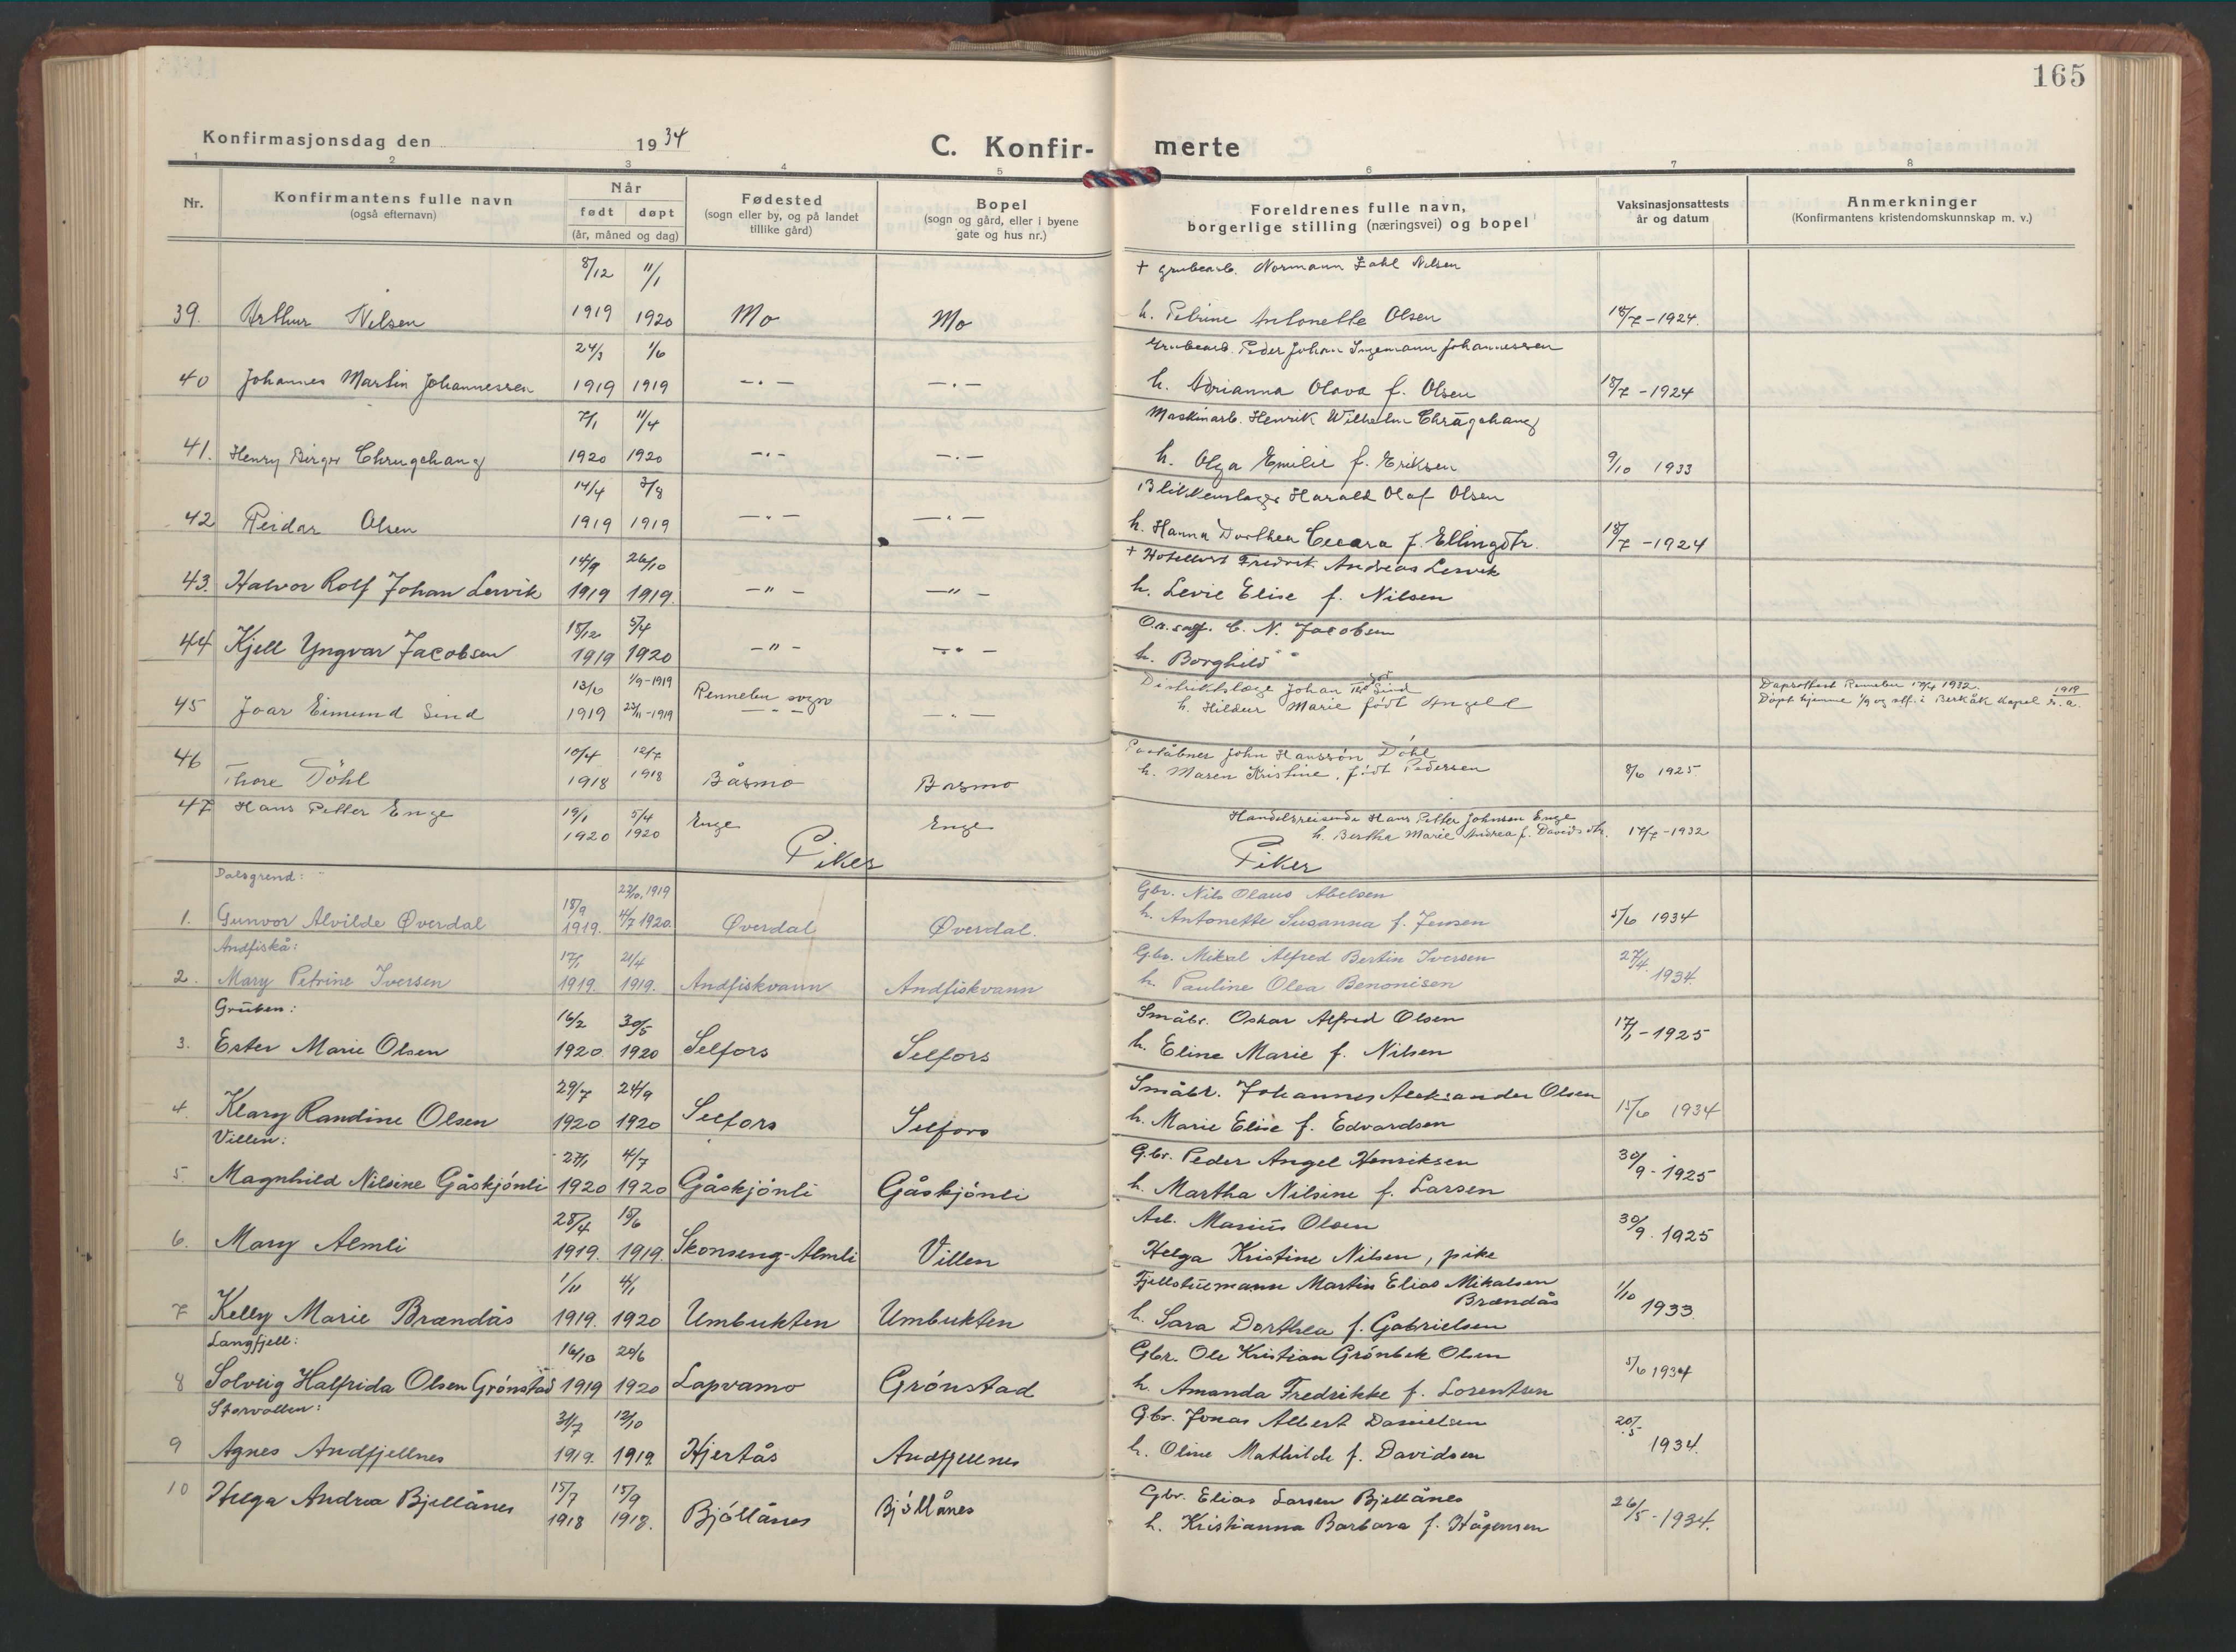 165
Konfirmasjonsdag den 1934
C. Konfir- merte
1 2 3 4 5 6 7 8
Nr.
Konfirmantens fulle navn
(også efternavn)
Når
født døpt
(år, måned og dag)
Fødested
(sogn eller by, og på landet
tillike gård)
Bopel
(sogn og gård, eller i byene
gate og hus nr.)
Foreldrenes fulle navn,
borgerlige stilling (næringsvei) og bopel
Vaksinasjonsattests
år og datum
Anmerkninger
(Konfirmantens kristendomskunnskap m. v.)
8/12 11/1 + grubearb. Normann Zahl Nilsen
39. Arthur Nilsen 1919 1920 Mo Mo h. Petrine Antonette Olsen 18/7-1924.
24/3 1/6 Grubearb. Peder Johan Ingemann Johannessen
40 Johannes Martin Johannessen 1919 1919 —.— —.— h. Adrianna Olava f. Olsen 18/7-1924
7/1 11/4 Maskinarb. Henrik Wilhelm
41. Henry Birger 1920 1920 —.— —.— h. Olga Emilie f. Eriksen 9/10 1933
14/4 3/8 Blikkenslager Harald Olaf Olsen
42 Reidar Olsen 1919 1919 —.— —.— h. Hanna Dorthea f. Ellingdtr. 18/7-1924
14/9 26/10 + Hotellvert Fredrik Andreas Lervik
43. Halvor Rolf Johan Lervik 1919 1919. —"— —"— h. Levie Elise f. Nilsen
18/12 5/4 O.r.sagf. C. N. Jacobsen
44 Kjell Yngvar Jacobsen 1919 1920 —"— —"— h. Borghild " "
13/6 1/9-1919 Rennebu sogn Distriktslæge Johan Sind
45 Joar Eimund Sind 1919 23/11-1919 —"— —.— h. Hildur Marie født Angell
Dåpsattest Rennebu 17/4 1932.
Døpt hjemme 1/9 og stf. i Berkåk kapel s. a. 1919
46 10/4 12/7 Poståbner John Hanssøn Döhl
Thore Döhl 1918 1918 Båsmo Basmo h. Maren Kristine, født Pedersen 8/6 1925
47 Hans Petter Enge 19/1 5/4 Enge Enge Handelsreisende Hans Petter Johnsen Enge
1920 1920 h. Bertha Marie Andrea f. Davidsdtr. 17/7-1932
Piker Piker
Dalsgrend:
18/9 22/10.1919 Gbr. Nils Olaus Abelsen
1. Gunvor Alvilde Øverdal 1919. 4/7 1920. Øverdal Øverdal. h. Antonette Susanna f. Jensen 5/6 1934
Andfiskå:
17/1 21/4 Gbr. Mikal Alfred Bertin Iversen 27/4
2. Mary Petrine Iversen 1919. 1919. Andfiskvann Andfiskvann h. Pauline Olea Benonisen 1934.
Gruben:
16/2 30/5 Småbr. Oskar Alfred Olsen
3. Ester Marie Olsen 1920. 1920 Selfors Selfors h. Eline Marie f. Nilsen 17/1-1925
29/7 24/9 Småbr. Johannes Aleksander Olsen
4. Klary Randine Olsen 1920 1920 Selfors Selfors h. Marie Elise f. Edvardsen 15/6 1934
Villen:
27/1 4/7 Gbr. Peder Angel Henriksen
5. Magnhild Nilsine Gåskjönli 1920 1920 Gåskjönli Gåskjönli h. Martha Nilsine f. Larsen 30/9-1925
28/4 15/6 Arb. Marius Olsen
6. Mary Almli 1919. 1919. Skonseng-Almli Villen Helga Kristine Nilsen, pike 30/9. 1925
1/11 4/1 Fjellstuemann Martin Elias Mikalsen
Brændås
7 Kelly Marie Brændås 1919. 1920 Umbukten Umbukten h. Sara Dorthea f. Gabrielsen 1/10 1933.
Langfjell:
16/10 20/6 Gbr. Ole Kristian Grönbek Olsen
8 Solveig Halfrida Olsen Grönstad 1919 1920 Lapvamo Grónstad h. Amanda Fredrikke f. Lorentsen 5/6 1934
Storvollen:
31/7 12/10 Gbr. Jonas Albert Danielsen 20/5
9 Agnes Andfjellnes 1919. 1919. Hjertås Andfjellnes h. Oline Mathilde f. Davidsen 1934.
10 15/7 15/9 Gbr. Elias Larsen Bjellånes
Helga Andrea Bjellånes 1918 1918. Bjöllånes Bjöllånes h. Kristianna Barbara f. Hågensen 26/5-1934.